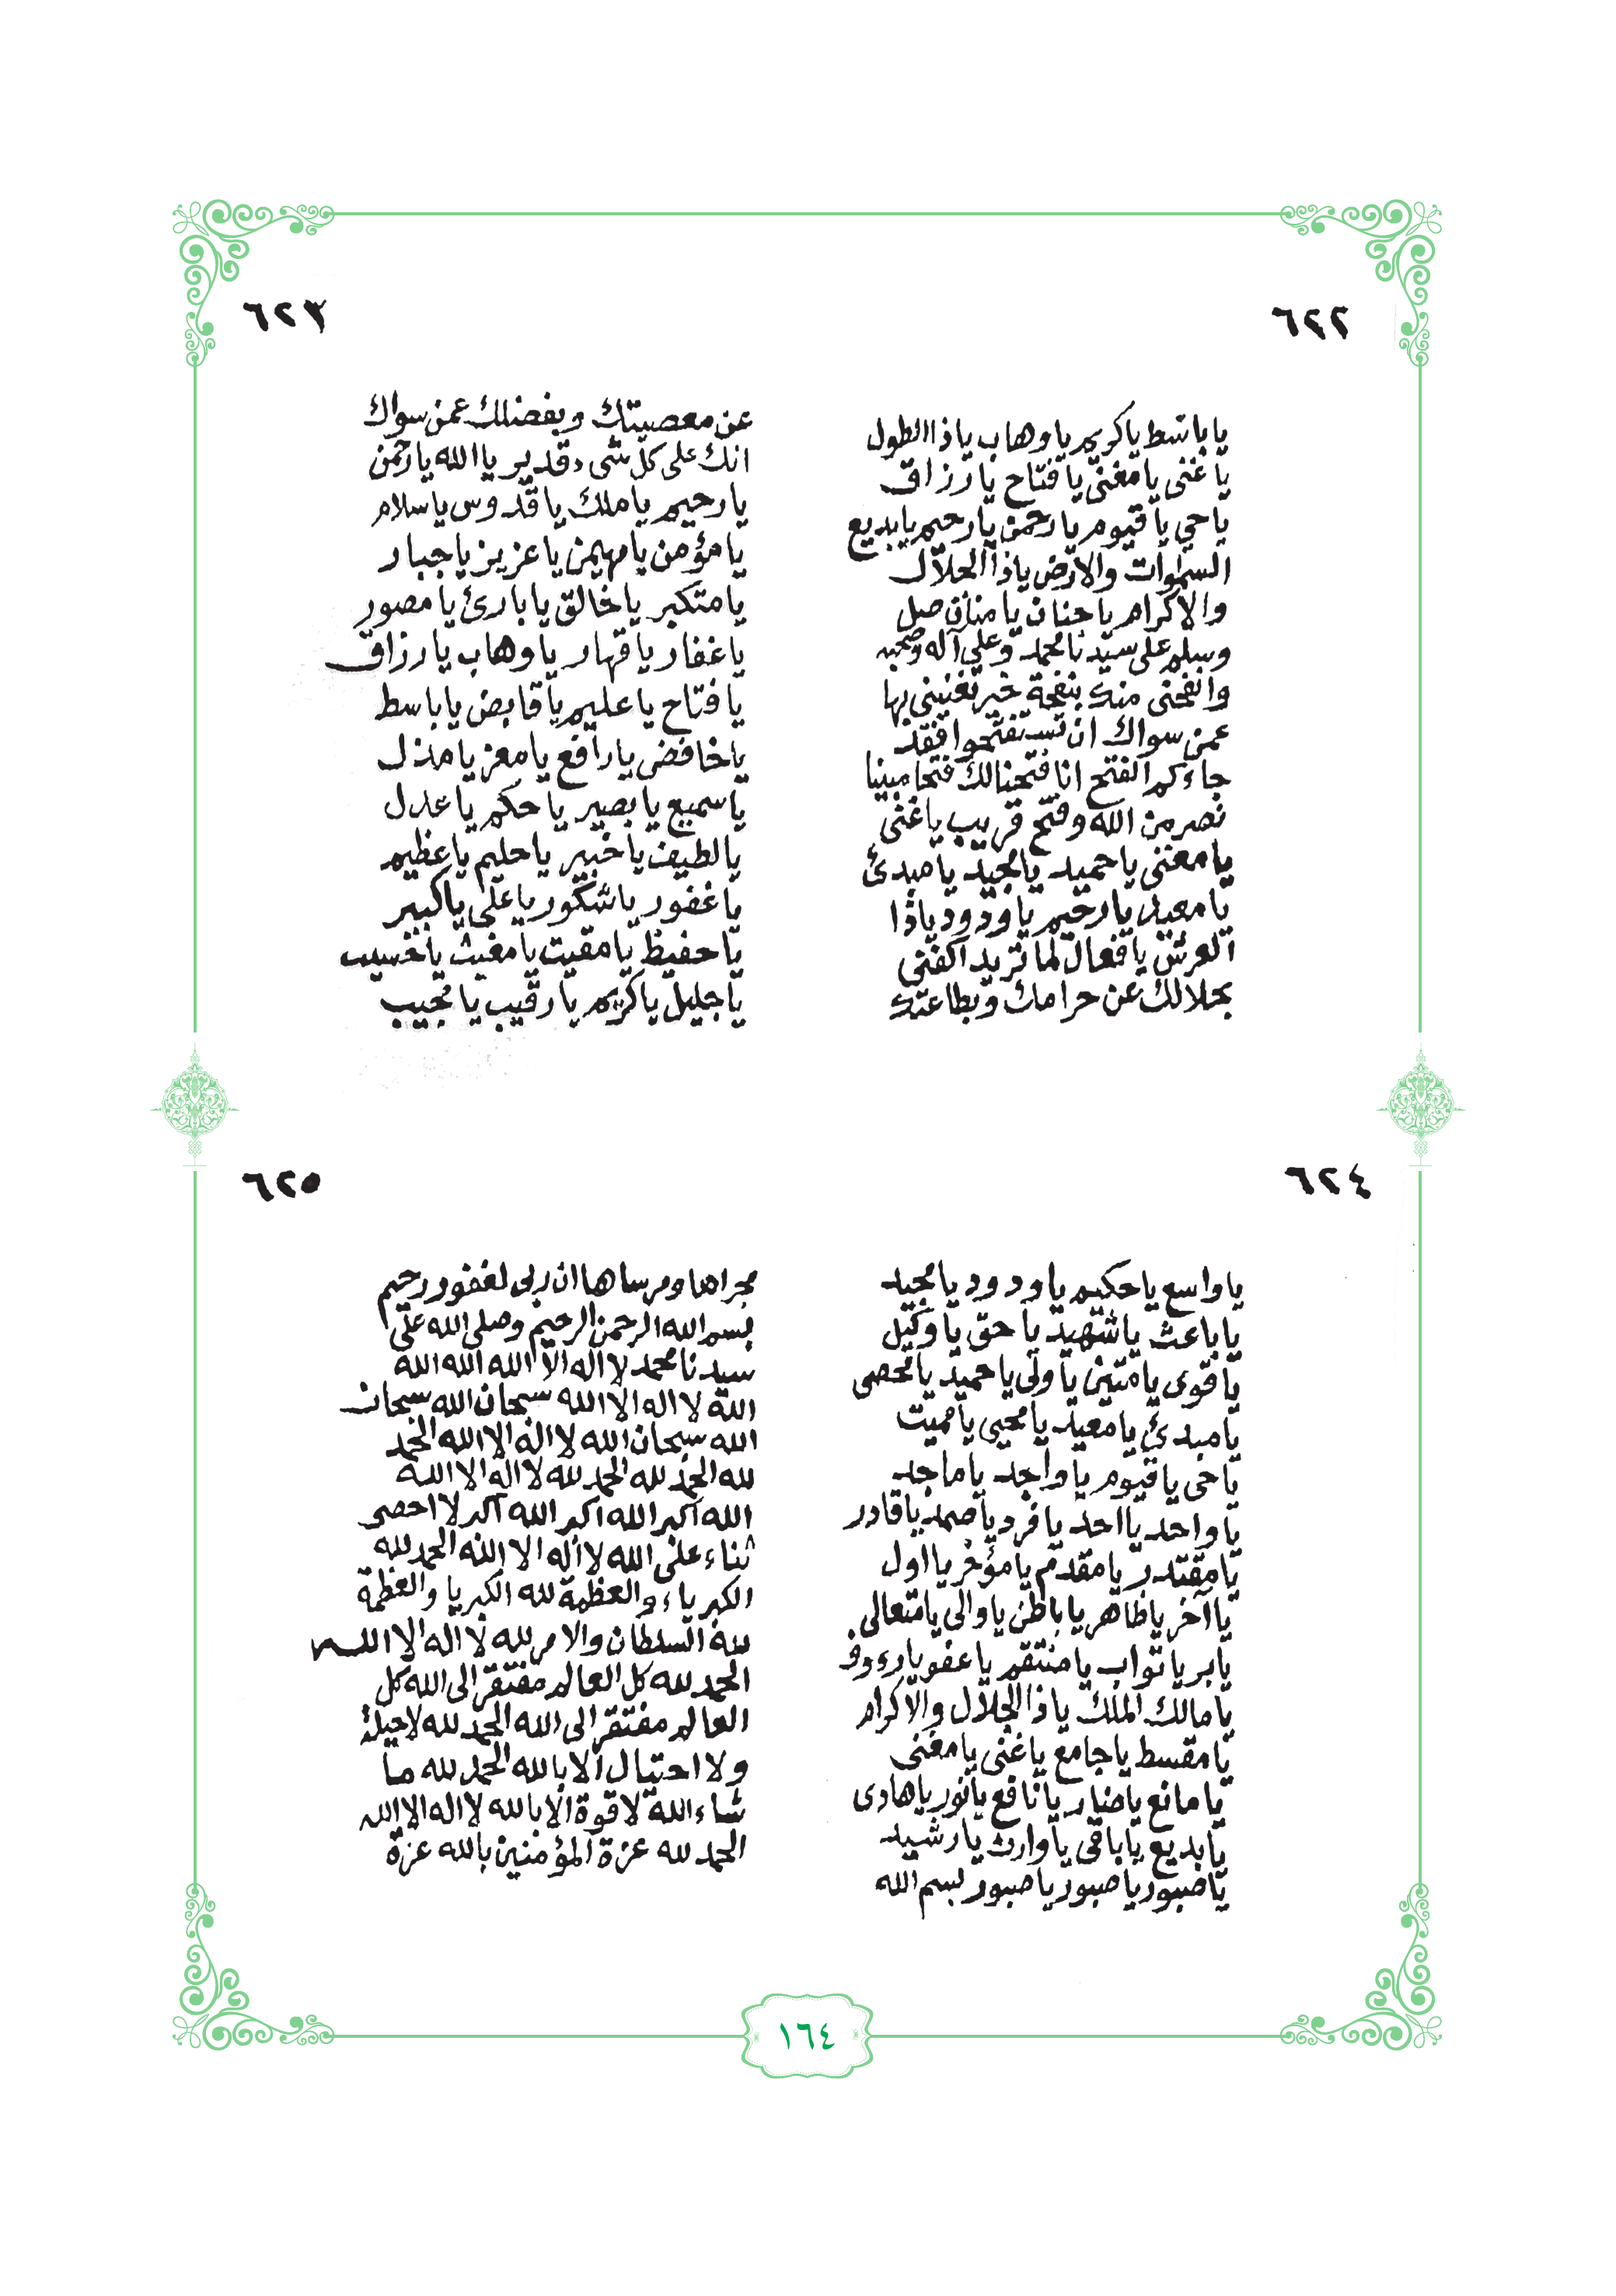 ٦٢٢
يا باسط يا كريم يا وهاب يا ذا الطول
يا غنى يا مغنى يا فتاح يا رزاق
يا حي يا قيوم يا رحمن يا رحيم يا بديع
السموات والارض يا ذا الجلال
والاكرام يا حنان يا منان صل
وسلم على سيدنا محمد وعلى آله وصحبه
وانفحنى منك بنفحة خير تغنينى بها
عمن سواك ان تستفتحوا فقد
جاءكم الفتح انا فتحنا لك فتحا مبينا
نصر من الله وفتح قريب يا غنى
يا مغنى يا حميد يا مجيد يا مبدئ
يا معيد يا رحيم يا ودود يا ذا
العرش يا فعال لما تريد اكفنى
بحلالك عن حرامك وبطاعتك
٦٢٣
عن معصيتك وبفضلك عمن سواك
انك على كل شىء قدير يا الله يا رحمن
يا رحيم يا ملك يا قدوس يا سلام
يا مؤمن يا مهيمن يا عزيز يا جبار
يا متكبر يا خالق يا بارئ يا مصور
يا غفار يا قهار يا وهاب يا رزاق
يا فتاح يا عليم يا قابض يا باسط
يا خافض يا رافع يا معز يا مذل
يا سميع يا بصير يا حكم يا عدل
يا لطيف يا خبير يا حليم يا عظيم
يا غفور يا شكور يا على يا كبير
يا حفيظ يا مقيت يا مغيث يا حسيب
يا جليل يا كريم يا رقيب يا مجيب
٦٢٤
يا واسع يا حكيم يا ودود يا مجيد
يا باعث يا شهيد يا حق يا وكيل
يا قوى يا متين يا ولى يا حميد يا محصى
يا مبدئ يا معيد يا محيى يا مميت
يا حى يا قيوم يا واجد يا ماجد
يا واحد يا احد يا فرد يا صمد يا قادر
يا مقتدر يا مقدم يا مؤخر يا اول
يا آخر يا ظاهر يا باطن يا والى يا متعالى
يا بر يا تواب يا منتقم يا عفو يا رءوف
يا مالك الملك يا ذا الجلال والاكرام
يا مقسط يا جامع يا غنى يا مغنى
يا مانع يا ضار يا نافع يا نور يا هادى
يا بديع يا باقى يا وارث يا رشيد
يا صبور يا صبور يا صبور بسم الله
٦٢٥
مجراها ومرساها ان ربى لغفور رحيم
بسم الله الرحمن الرحيم وصلى الله على
سيدنا محمد لا اله الا الله الله الله
الله لا اله الا الله سبحان الله سبحان
الله سبحان الله لا اله الا الله الحمد
لله الحمد لله الحمد لله لا اله الا الله
الله اكبر الله اكبر الله اكبر لا احصى
ثناء على الله لا اله الا الله الحمد لله
الكبرياء والعظمة لله الكبريا والعظمة
لله السلطان والامر لله لا اله الا الله
الحمد لله كل العالم مفتقر الى الله كل
العالم مفتقر الى الله الحمد لله لا حيلة
ولا احتيال الا بالله الحمد لله ما
شاء الله لا قوة الا بالله لا اله الا الله
الحمد لله عزة المؤمنين بالله عزة
١٦٤